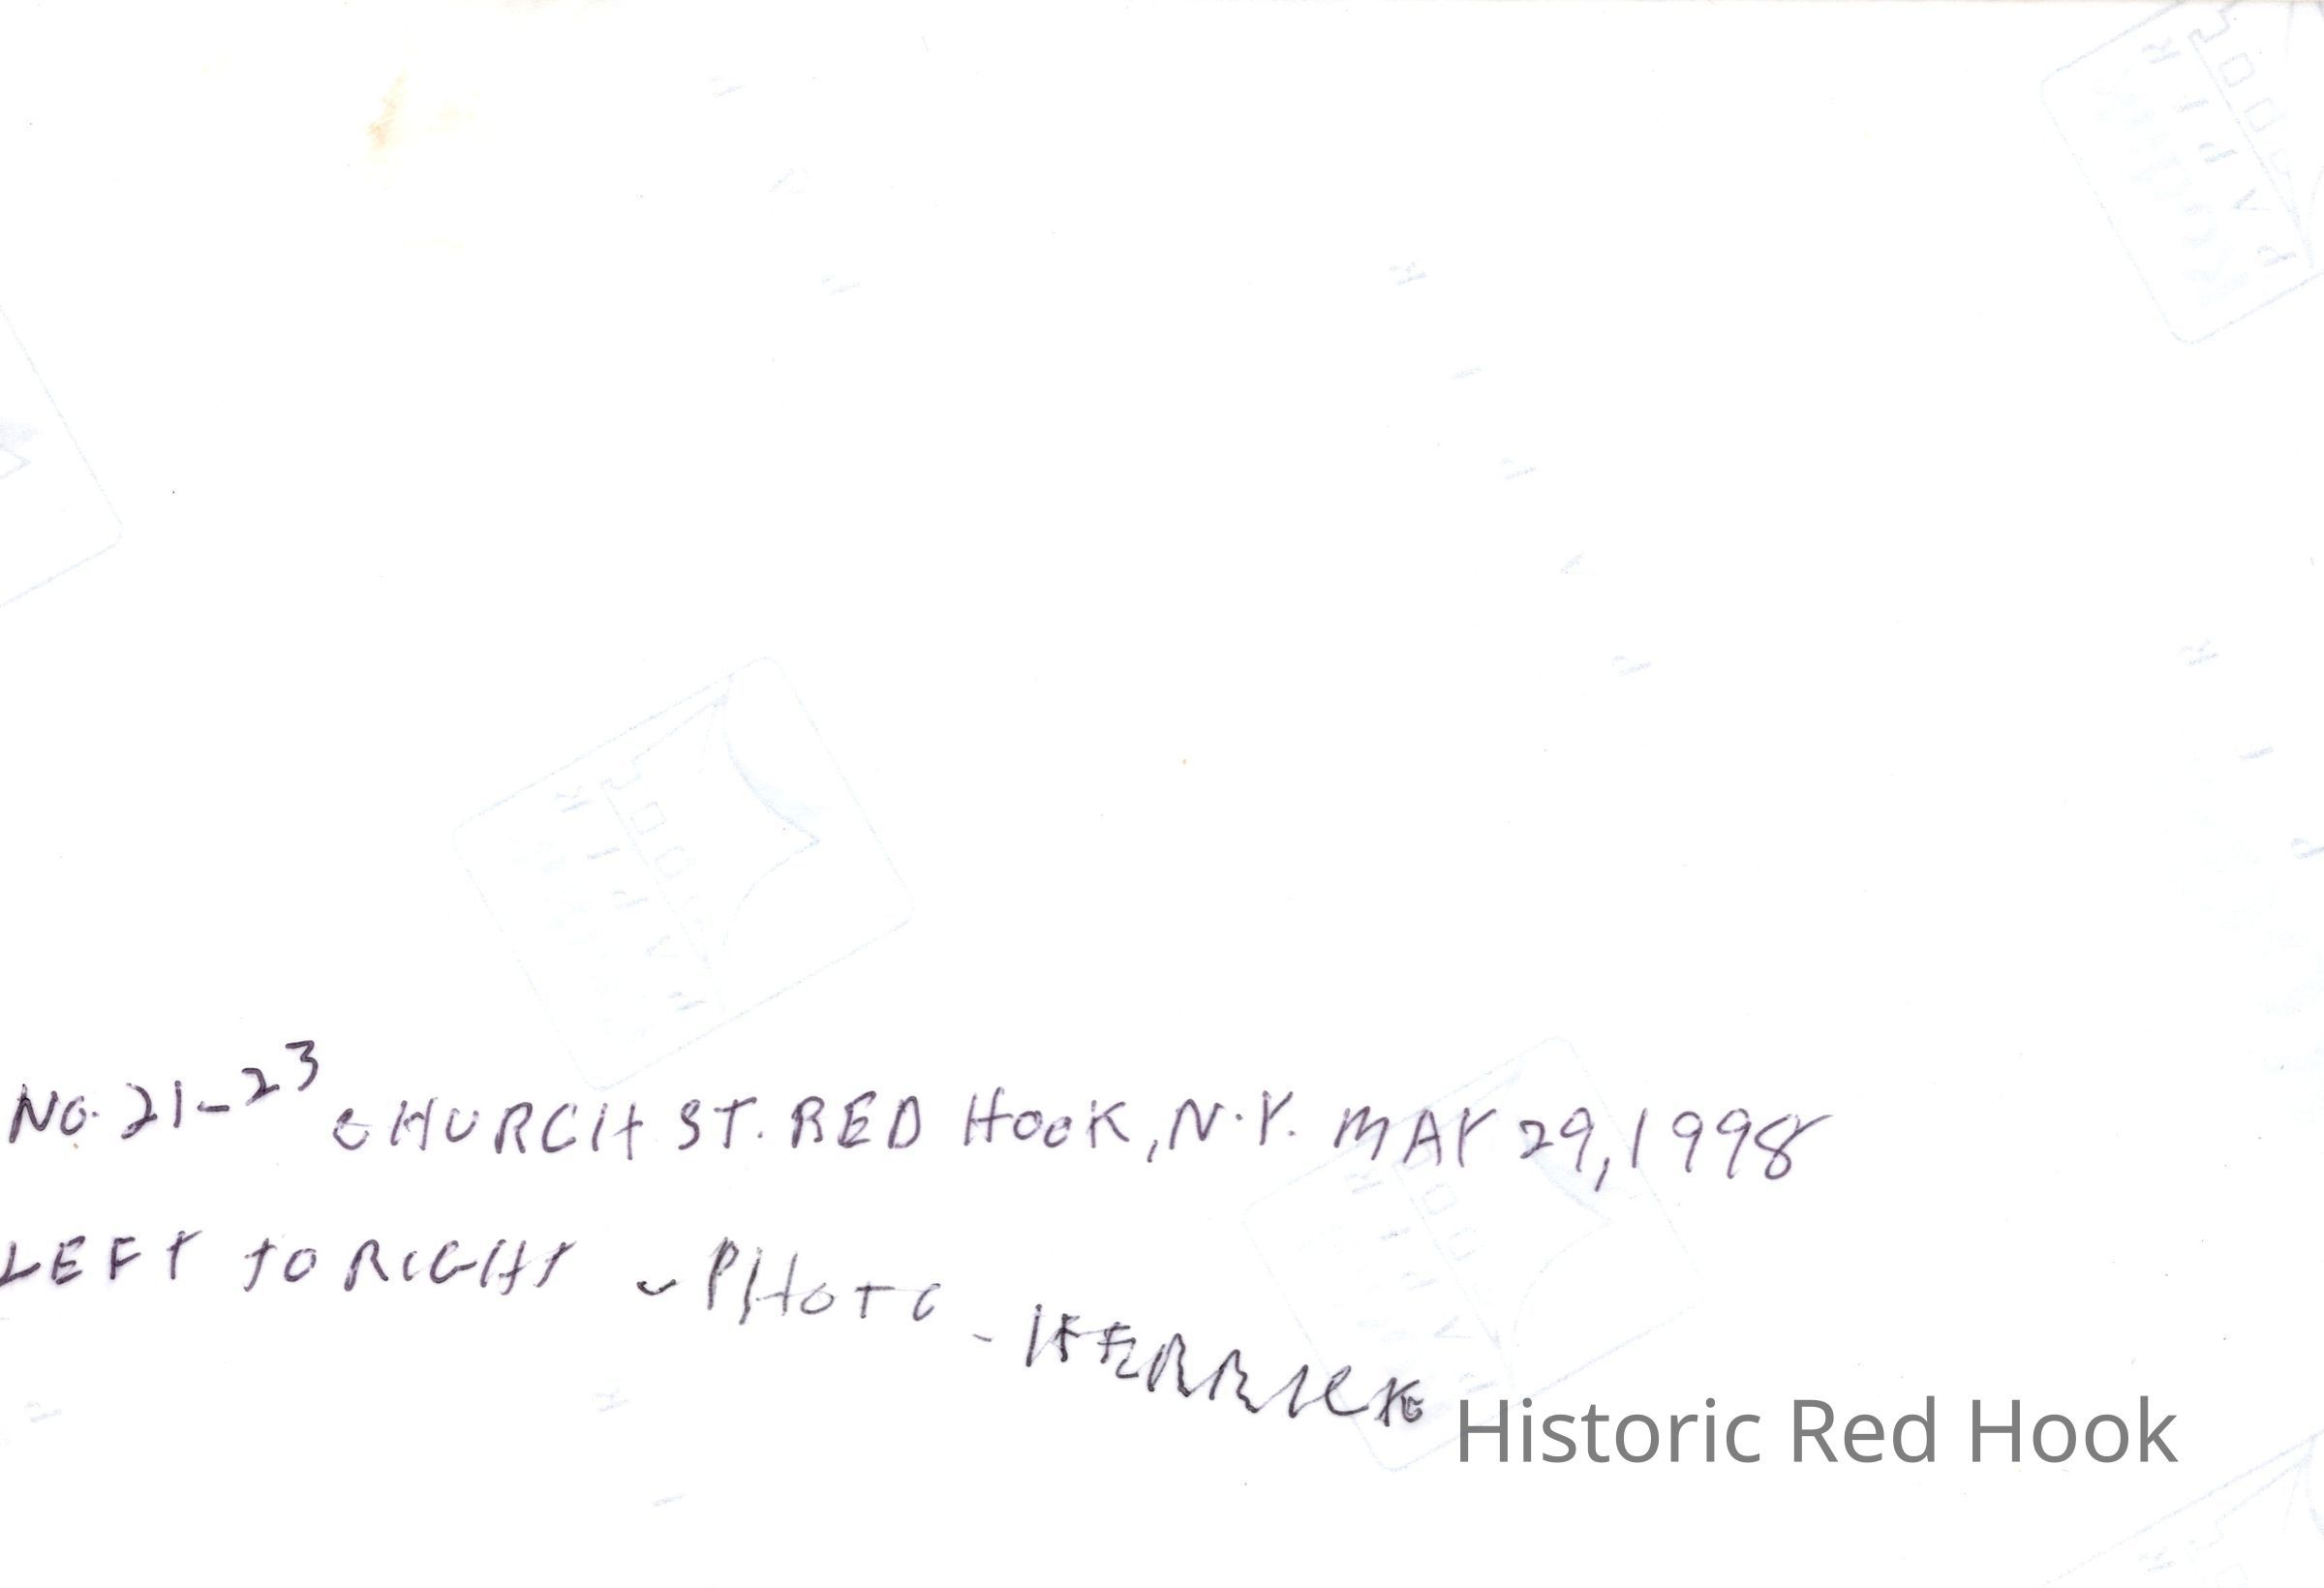 NO. 21-23 CHURCH ST. RED HOOK, N.Y. MAY 29, 1998
LEFT TO RIGHT - PHOTO -
Historic Red Hook